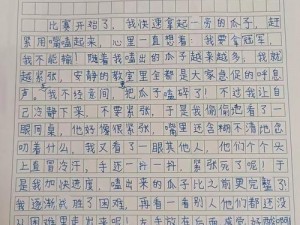 比赛开始了，我快速拿起一旁的瓜子，赶
紧用嘴嗑起来，心里一直想着：我要拿冠军，
我不能输！随着我嗑出的瓜子越来越多，我就
越紧张，安静的教室里全都是大家急促的呼吸
声。我不经意间，把瓜子嗑碎了！不过我让自
己冷静下来，不要紧张，于是我偷偷瞄了一
眼同桌，他好像很紧张，嘴里还含糊不清地念
叨着什么，我又看了一眼其他人，他们个个头
上直冒冷汗，手还一抖一抖，紧张死了呢！于
是我加快速度，嗑出来的瓜子比之前更完整了！
我逐渐战胜了困难，再看一看别人他们都还没
从困难里走出来呢！